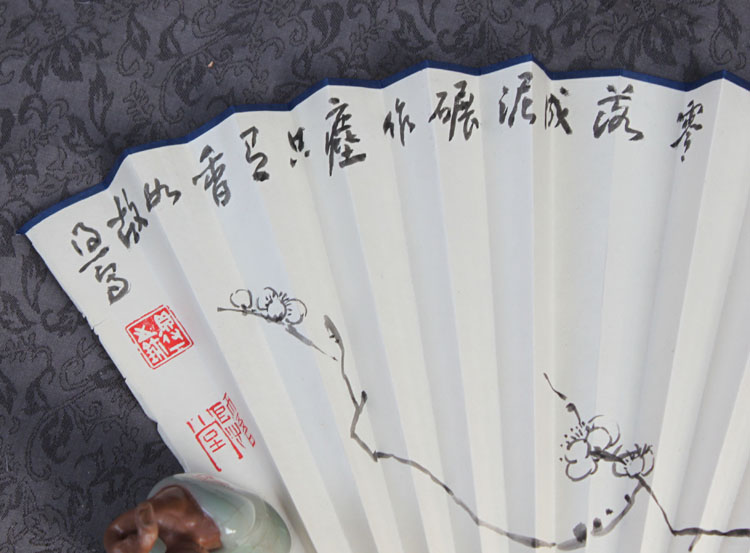 零落成泥碾作塵只有香如故